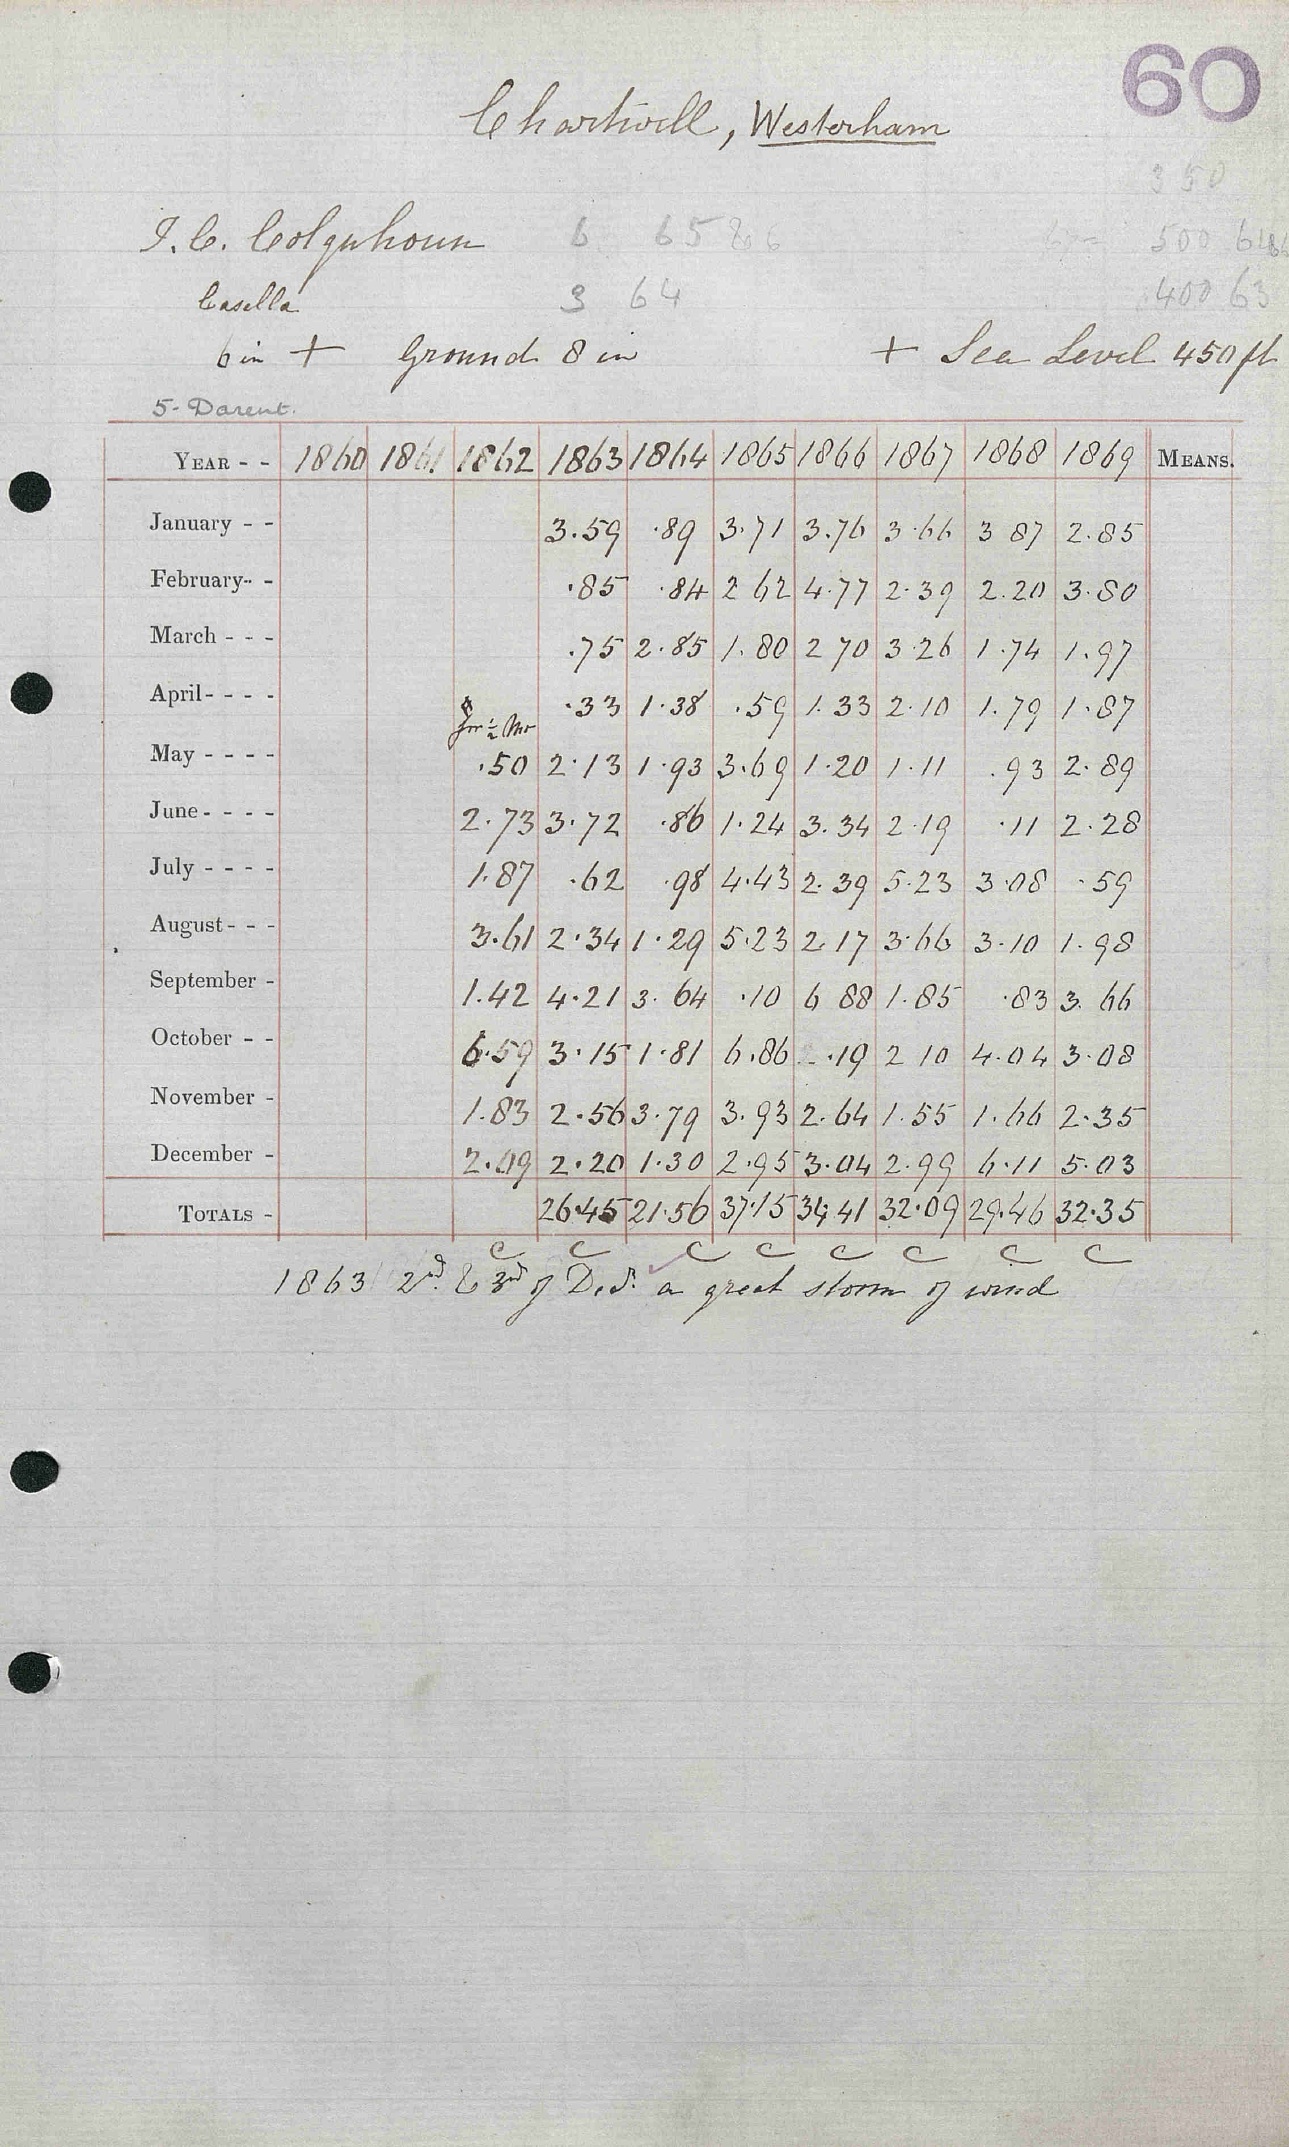 60
Chartwell, Westerham
350
J. C. Colquhoun 6 65 & 6 67= 500 64
Casella 3 64 400 63
6 in + Ground 8 in + Sea Level 450 ft
5 - Darent.
YEAR - - 1860 1861 1862 1863 1864 1865 1866 1867 1868 1869 MEANS.
January - - 3.59 .89 3.71 3.76 3.66 3 87 2.85
February - - .85 .84 2 62 4.77 2.39 2.20 3.80
March - - - .75 2.85 1.80 2 70 3.26 1.74 1.97
April - - - - .33 1.38 .59 1.33 2.10 1.79 1.87
for ½ Mo
May - - - - .50 2.13 1.93 3.69 1.20 1.11 .93 2.89
June - - - - 2.73 3.72 .86 1.24 3.34 2.19 .11 2.28
July - - - - 1.87 .62 .98 4.43 2.39 5.23 3.08 .59
August - - - 3.61 2.34 1.29 5.23 2.17 3.66 3.10 1.98
September - 1.42 4.21 3.64 .10 6 88 1.85 .83 3.66
October - - 6.59 3.15 1.81 6.86 .19 2 10 4.04 3.08
November - 1.83 2.56 3.79 3.93 2.64 1.55 1.66 2.35
December - 2.09 2.20 1.30 2.95 3.04 2.99 6.11 5.03
TOTALS - 26.45 21.56 37.15 34.41 32.09 29.46 32.35
C C C C C C C C
1863 2nd & 3rd of Decr. a great storm of wind